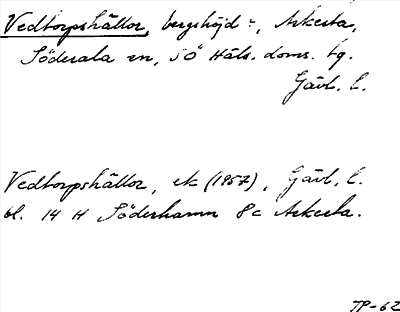 Vedtorpshällor, bergshöjd -, Askesta,
Söderala sn, SÖ Häls. doms. tg.
Gävl. l.
Vedtorpshällor, ek (1957), Gävl. l.
bl. 14 H Söderhamn 8c Askesta.
TP-62